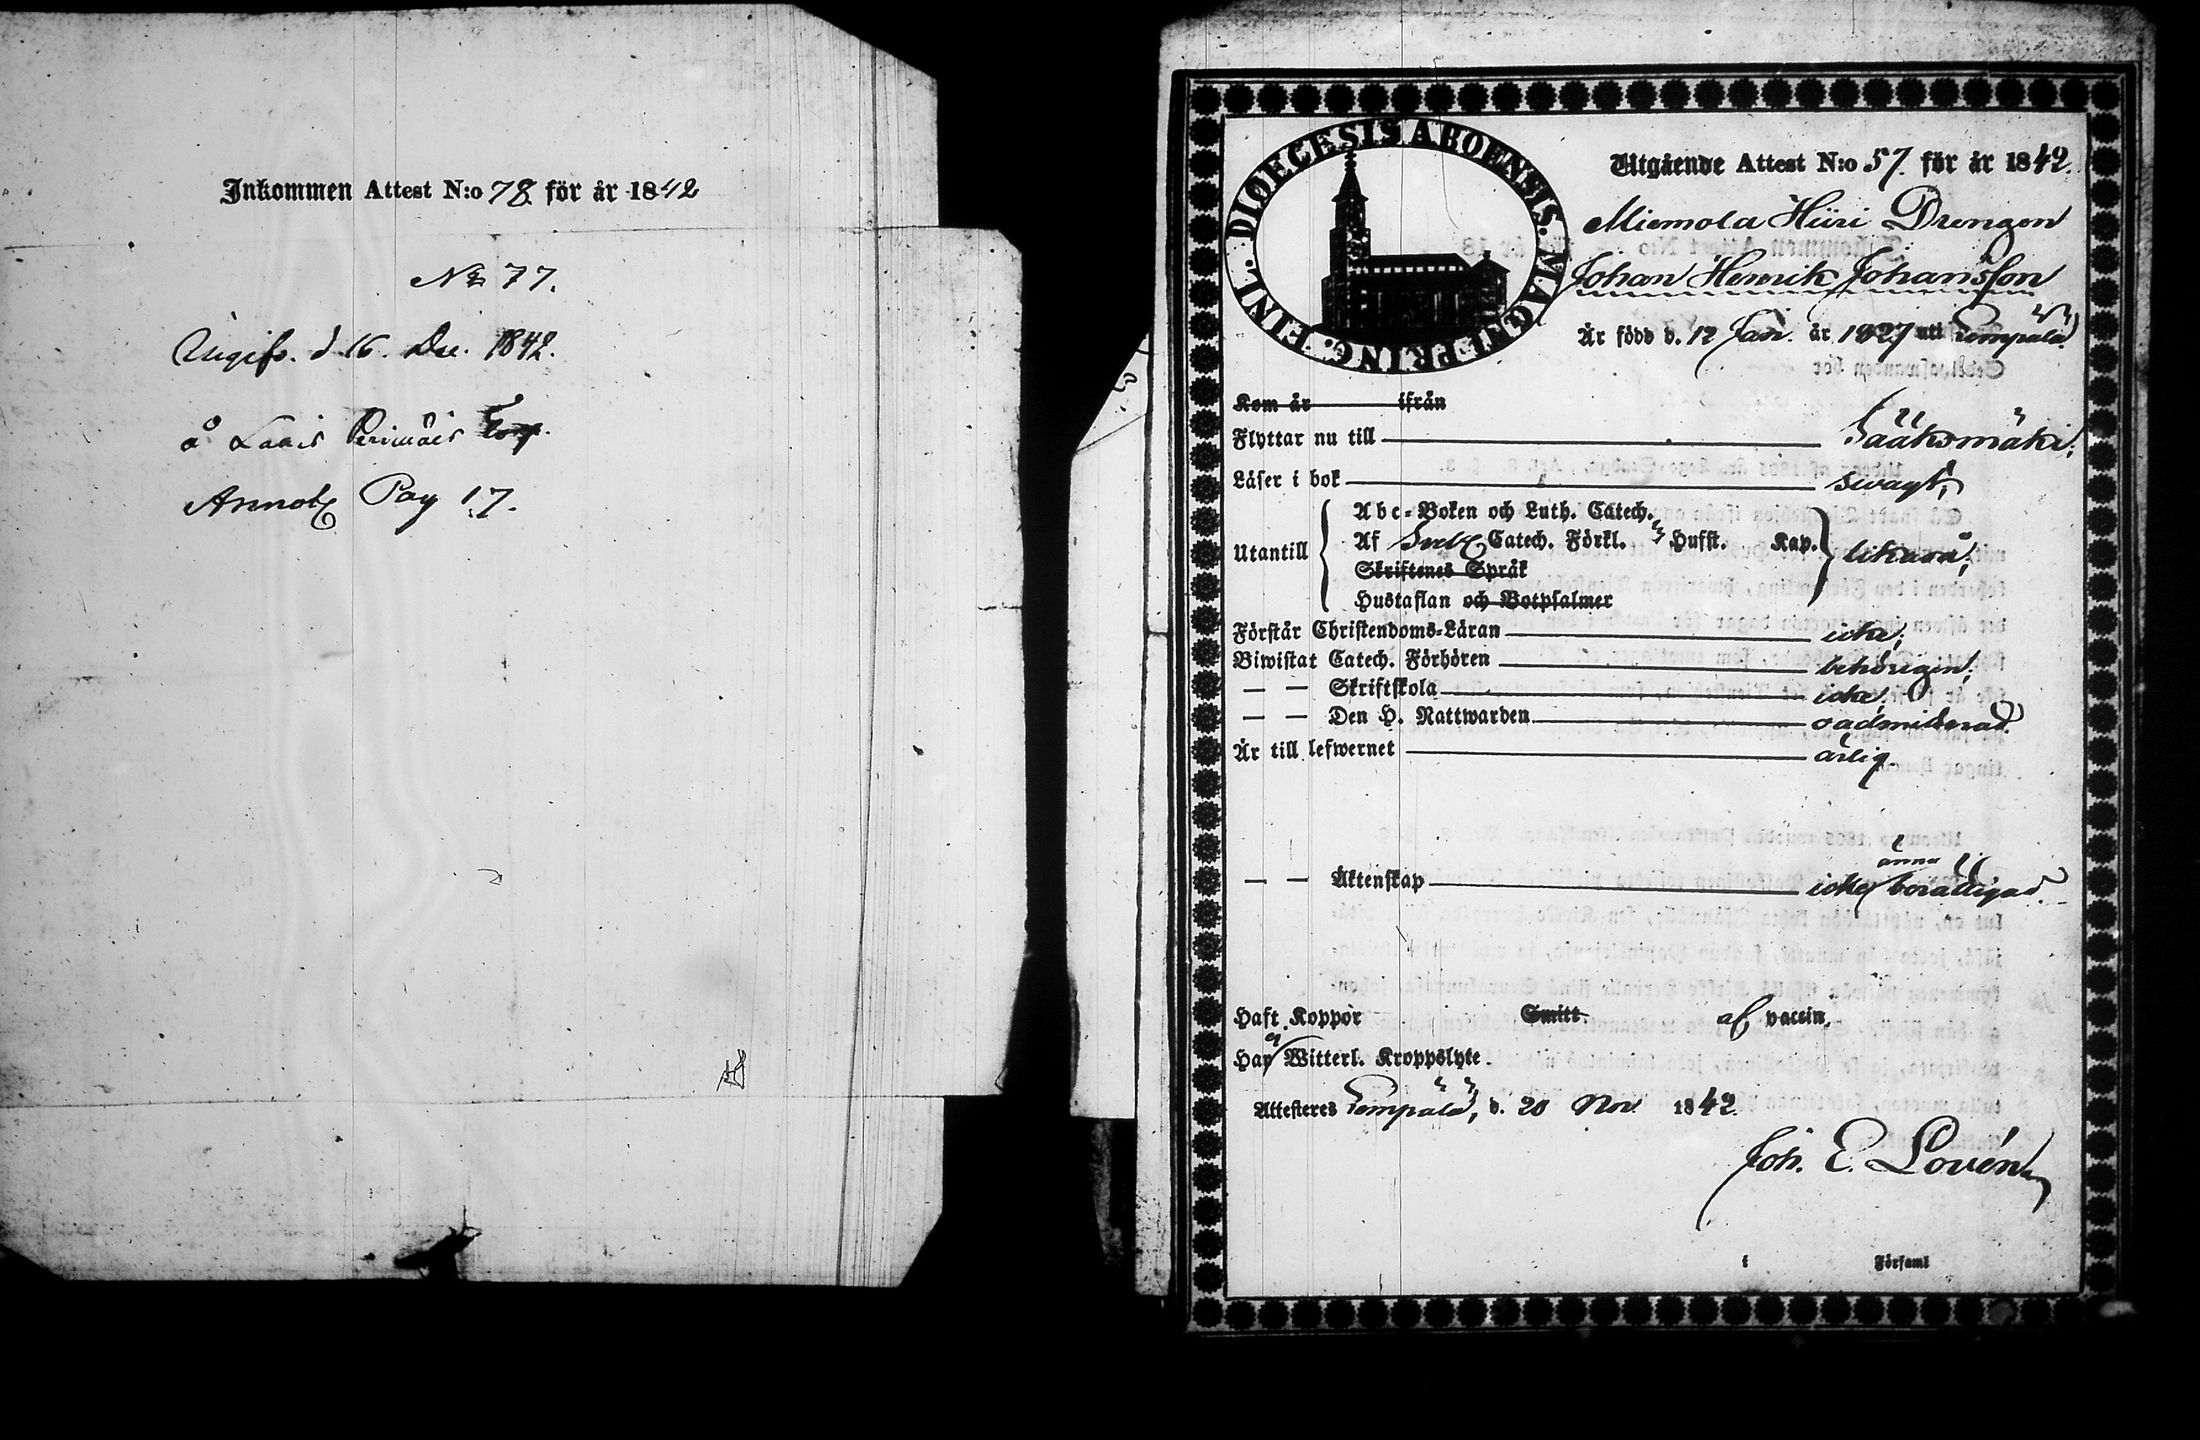 Inkommen Attest N:o 78. för år 1842
No 77.
d 16. Dec. 1842.
å Laais
Annot Pag 17.
DIOECESIS ABOENSIS. MAGNI PRINC. FINL.
Utgående Attest N:o 57. för år 1842.
Miemola Hiiri Drengen
Johan Henrik Johansson
Är född d. 12 Jan. år 1827 uti Lempälä.
Kom år ifrån
Flyttar nu till Sääksmäki;
Läser i bok swagt;
Utantill
Abc-Boken och Luth. Catech.
Af Sveb Catech. Förkl. Hufst. Kap. likaså;
Skriftenes Språk
Hustaflan och Botpsalmer
Förstår Christendoms-Läran icke;
Biwistat Catech. Förhören behörigen;
— — Skriftskola icke;
— — Den H. Nattwarden oadmitterad.
Är till lefwernet ärlig.
ännu
— — Äktenskap icke berättigad.
Haft Koppor Smitt. af vaccin.
Har ej Witterl. Kroppslyte.
Attesteres Lempälä, d. 20 Nov. 1842.
Joh. E. Lovén
i Församl